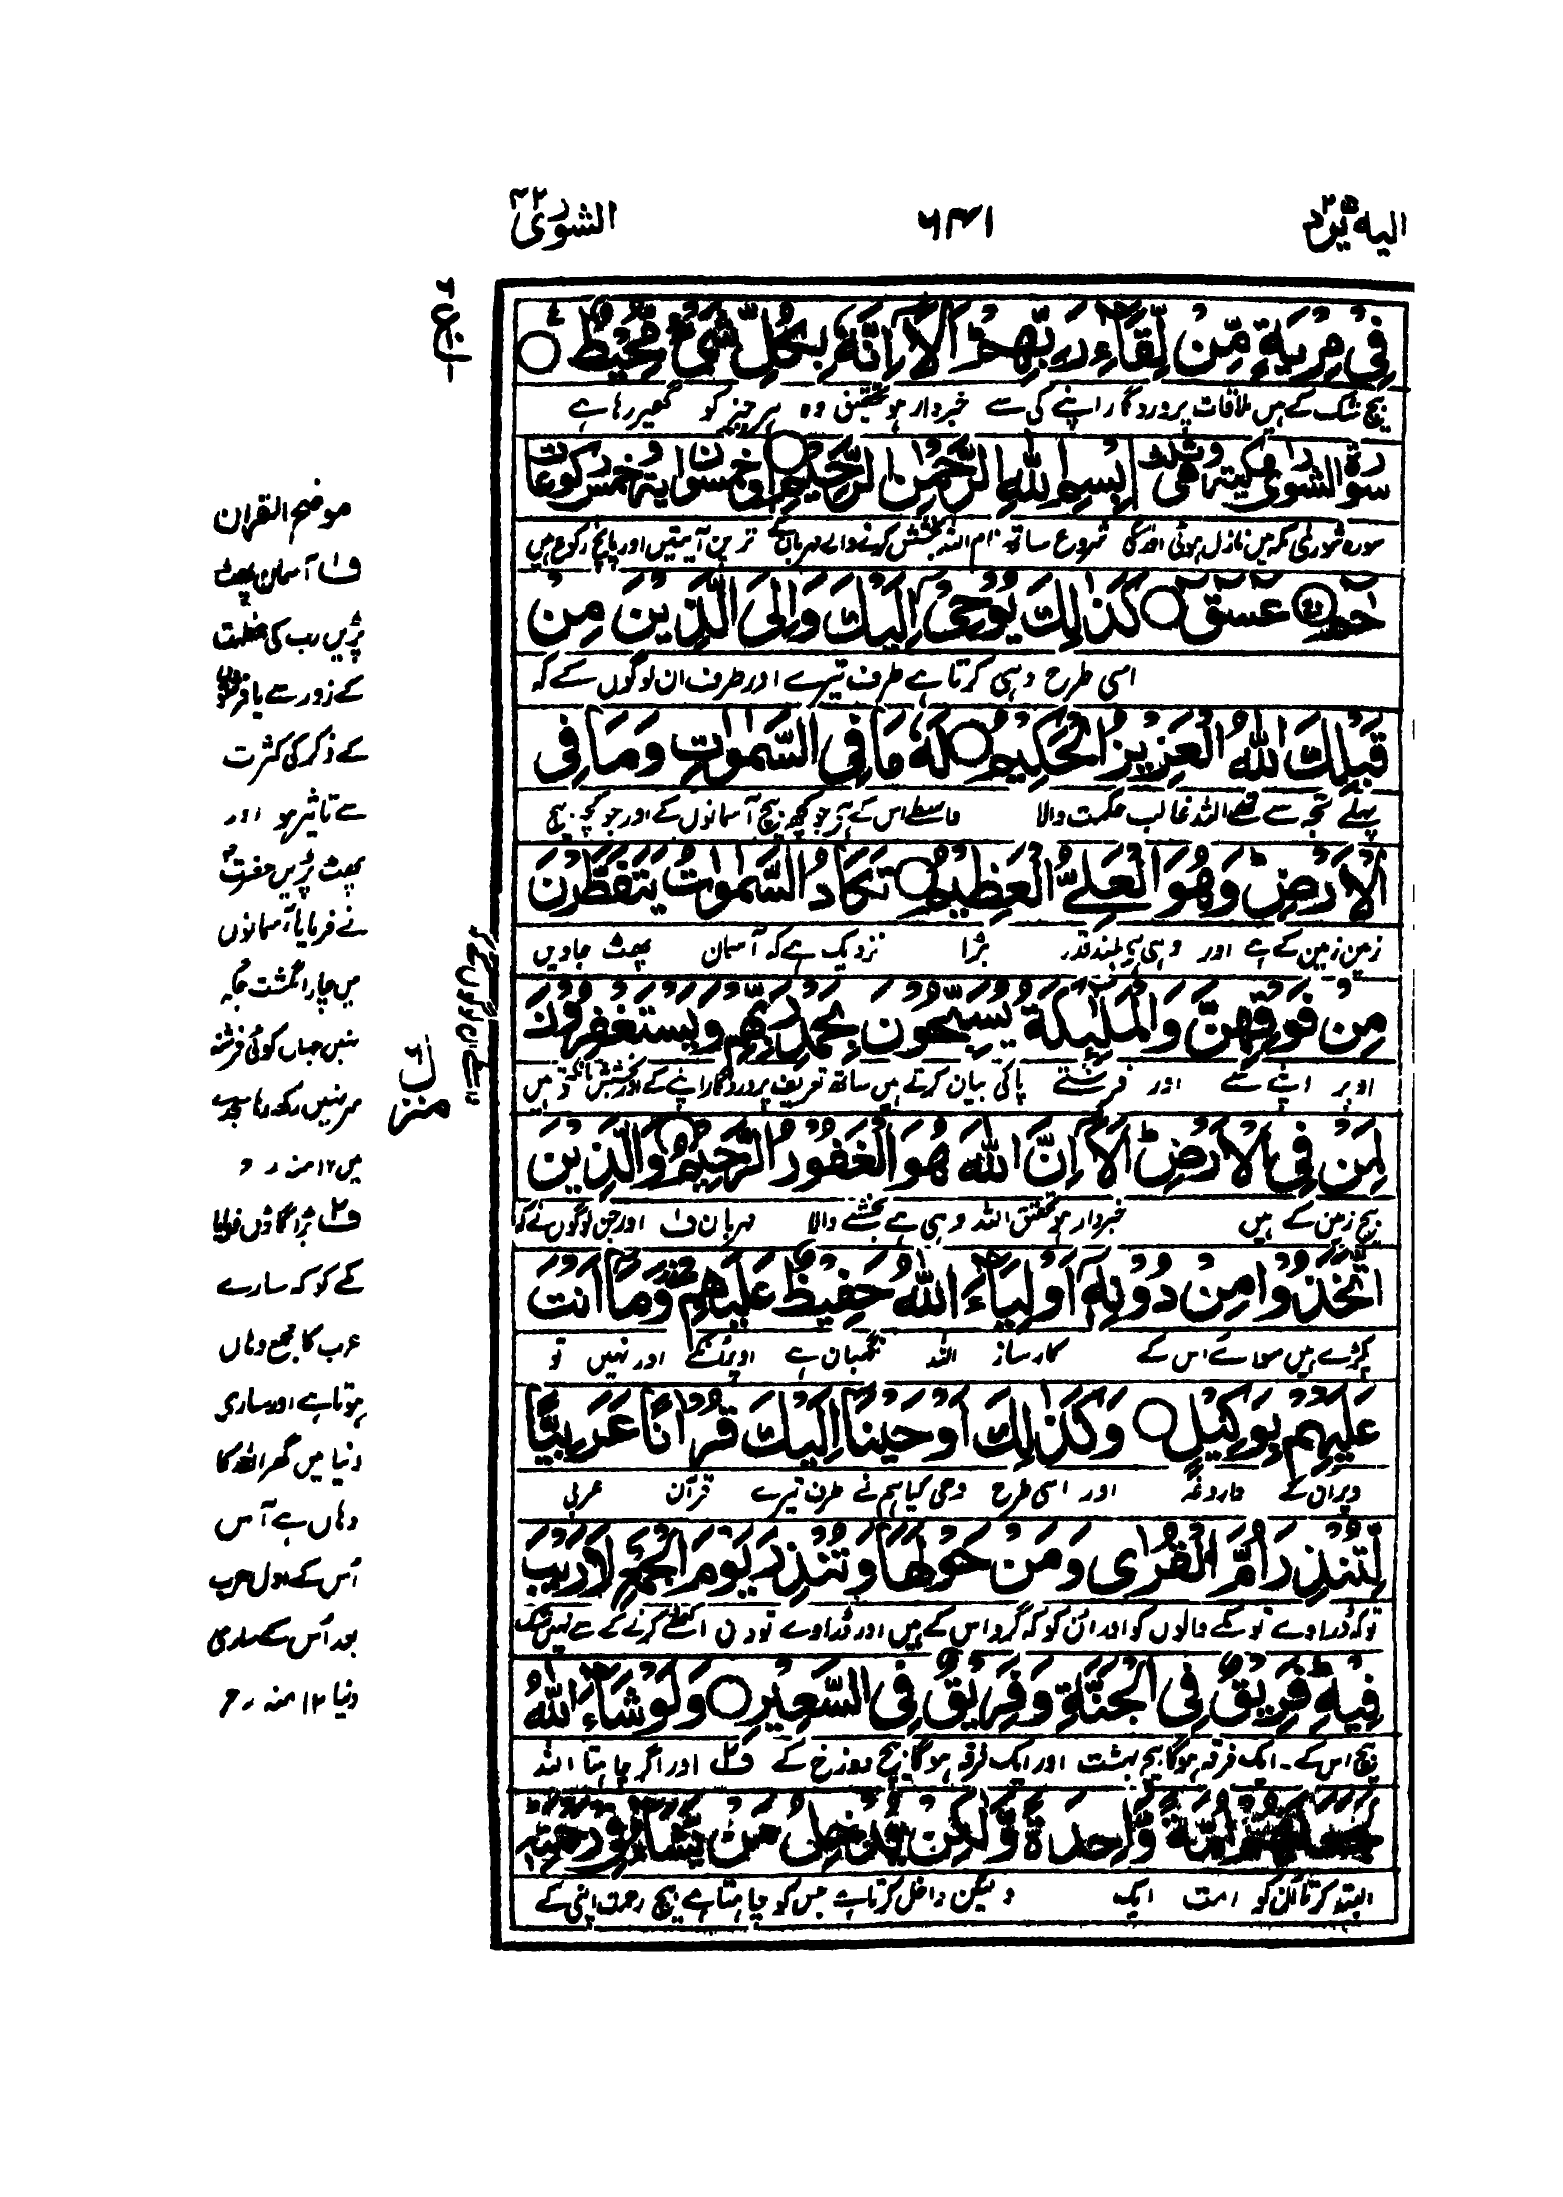 الیه یرد ۲۵
۶۴۱
الشوری ۴۲
فِیْ مِرْیَةٍ مِّنْ لِّقَآءِ رَبِّهِمْ اَلَاۤ اِنَّهٗ بِكُلِّ شَیْءٍ مُّحِیْطٌ
بیچ شک کے ہیں ملاقات پروردگار اپنے کی سے خبردار ہو تحقیق وہ ہر چیز کو گھیر رہا ہے
سورة الشوری مكیة وهی ثلث بِسْمِ اللّٰهِ الرَّحْمٰنِ الرَّحِیْمِ وخمسون ایة وخمس ركوعات
سورہ شوریٰ مکہ میں نازل ہوئی اور اسکی شروع ساتھ نام اللہ بخشش کرنے والے مہربان کے ترپن آیتیں اور پانچ رکوع ہیں
حٰمٓ عٓسٓقٓ كَذٰلِكَ یُوْحِیْۤ اِلَیْكَ وَاِلَی الَّذِیْنَ مِنْ
اسی طرح وحی کرتا ہے طرف تیرے اور طرف ان لوگوں کے کہ
قَبْلِكَ اللّٰهُ الْعَزِیْزُ الْحَكِیْمُ لَهٗ مَا فِی السَّمٰوٰتِ وَمَا فِی
پہلے تجھ سے تھے اللہ غالب حکمت والا واسطے اس کے ہے جو کچھ بیچ آسمانوں کے اور جو کچھ بیچ
الْاَرْضِ وَهُوَ الْعَلِیُّ الْعَظِیْمُ تَكَادُ السَّمٰوٰتُ یَتَفَطَّرْنَ
زمین زمین کے ہے اور وہی ہے بلند قدر بڑا نزدیک ہے کہ آسمان پھٹ جاویں
مِنْ فَوْقِهِنَّ وَالْمَلٰٓئِكَةُ یُسَبِّحُوْنَ بِحَمْدِ رَبِّهِمْ وَیَسْتَغْفِرُوْنَ
اوپر اپنے سے اور فرشتے پاکی بیان کرتے ہیں ساتھ تعریف پروردگار اپنے کے اور بخشش مانگتے ہیں
لِمَنْ فِی الْاَرْضِ اَلَاۤ اِنَّ اللّٰهَ هُوَ الْغَفُوْرُ الرَّحِیْمُ وَالَّذِیْنَ
بیچ زمین کے ہیں خبردار ہو تحقیق اللہ وہی ہے بخشنے والا مہربان ف۱ اور جن لوگوں نے کہ
اتَّخَذُوْا مِنْ دُوْنِهٖۤ اَوْلِیَآءَ اللّٰهُ حَفِیْظٌ عَلَیْهِمْ وَمَاۤ اَنْتَ
پکڑے ہیں سوائے اس کے کارساز اللہ نگہبان ہے اوپر انکے اور نہیں تو
عَلَیْهِمْ بِوَكِیْلٍ وَكَذٰلِكَ اَوْحَیْنَاۤ اِلَیْكَ قُرْاٰنًا عَرَبِیًّا
اوپر ان کے داروغہ اور اسی طرح وحی کیا ہم نے طرف تیرے قرآن عربی
لِّتُنْذِرَ اُمَّ الْقُرٰی وَمَنْ حَوْلَهَا وَتُنْذِرَ یَوْمَ الْجَمْعِ لَا رَیْبَ
توکہ ڈراوے تو مکے والوں کو اور ان کو کہ گرد اس کے ہیں اور ڈراوے تو دن اکٹھے کرنے کے سے نہیں شک
فِیْهِ فَرِیْقٌ فِی الْجَنَّةِ وَفَرِیْقٌ فِی السَّعِیْرِ وَلَوْ شَآءَ اللّٰهُ
بیچ اس کے۔ ایک فرقہ ہوگا بیچ بہشت اور ایک فرقہ ہوگا بیچ دوزخ کے ف۲ اور اگر چاہتا اللہ
لَجَعَلَهُمْ اُمَّةً وَّاحِدَةً وَّلٰكِنْ یُّدْخِلُ مَنْ یَّشَآءُ فِیْ رَحْمَتِهٖ
البتہ کرتا ان کو امت ایک ولیکن داخل کرتا ہے جس کو چاہتا ہے بیچ رحمت اپنی کے
موضح القران
ف۱ آسمان پھٹ
پڑیں رب کی عظمت
کے زور سے یا فرشتوں
کے ذکر کی کثرت
سے تاثیر ہو اور
پھٹ پڑیں حضرت
نے فرمایا آسمانوں
میں چار انگشت جگہ
نہیں جہاں کوئی فرشتہ
سر نہیں رکھ رہا سجدے
میں ۱۲ منہ رح
ف۲ بڑا گاؤں فرمایا
مکے کو کہ سارے
عرب کا مجمع وہاں
ہوتا ہے اور ساری
دنیا میں گھر اللہ کا
وہاں ہے آس
اُس کے اول عرب
بعد اُس کے ساری
دنیا ۱۲ منہ رح
منزل ۶